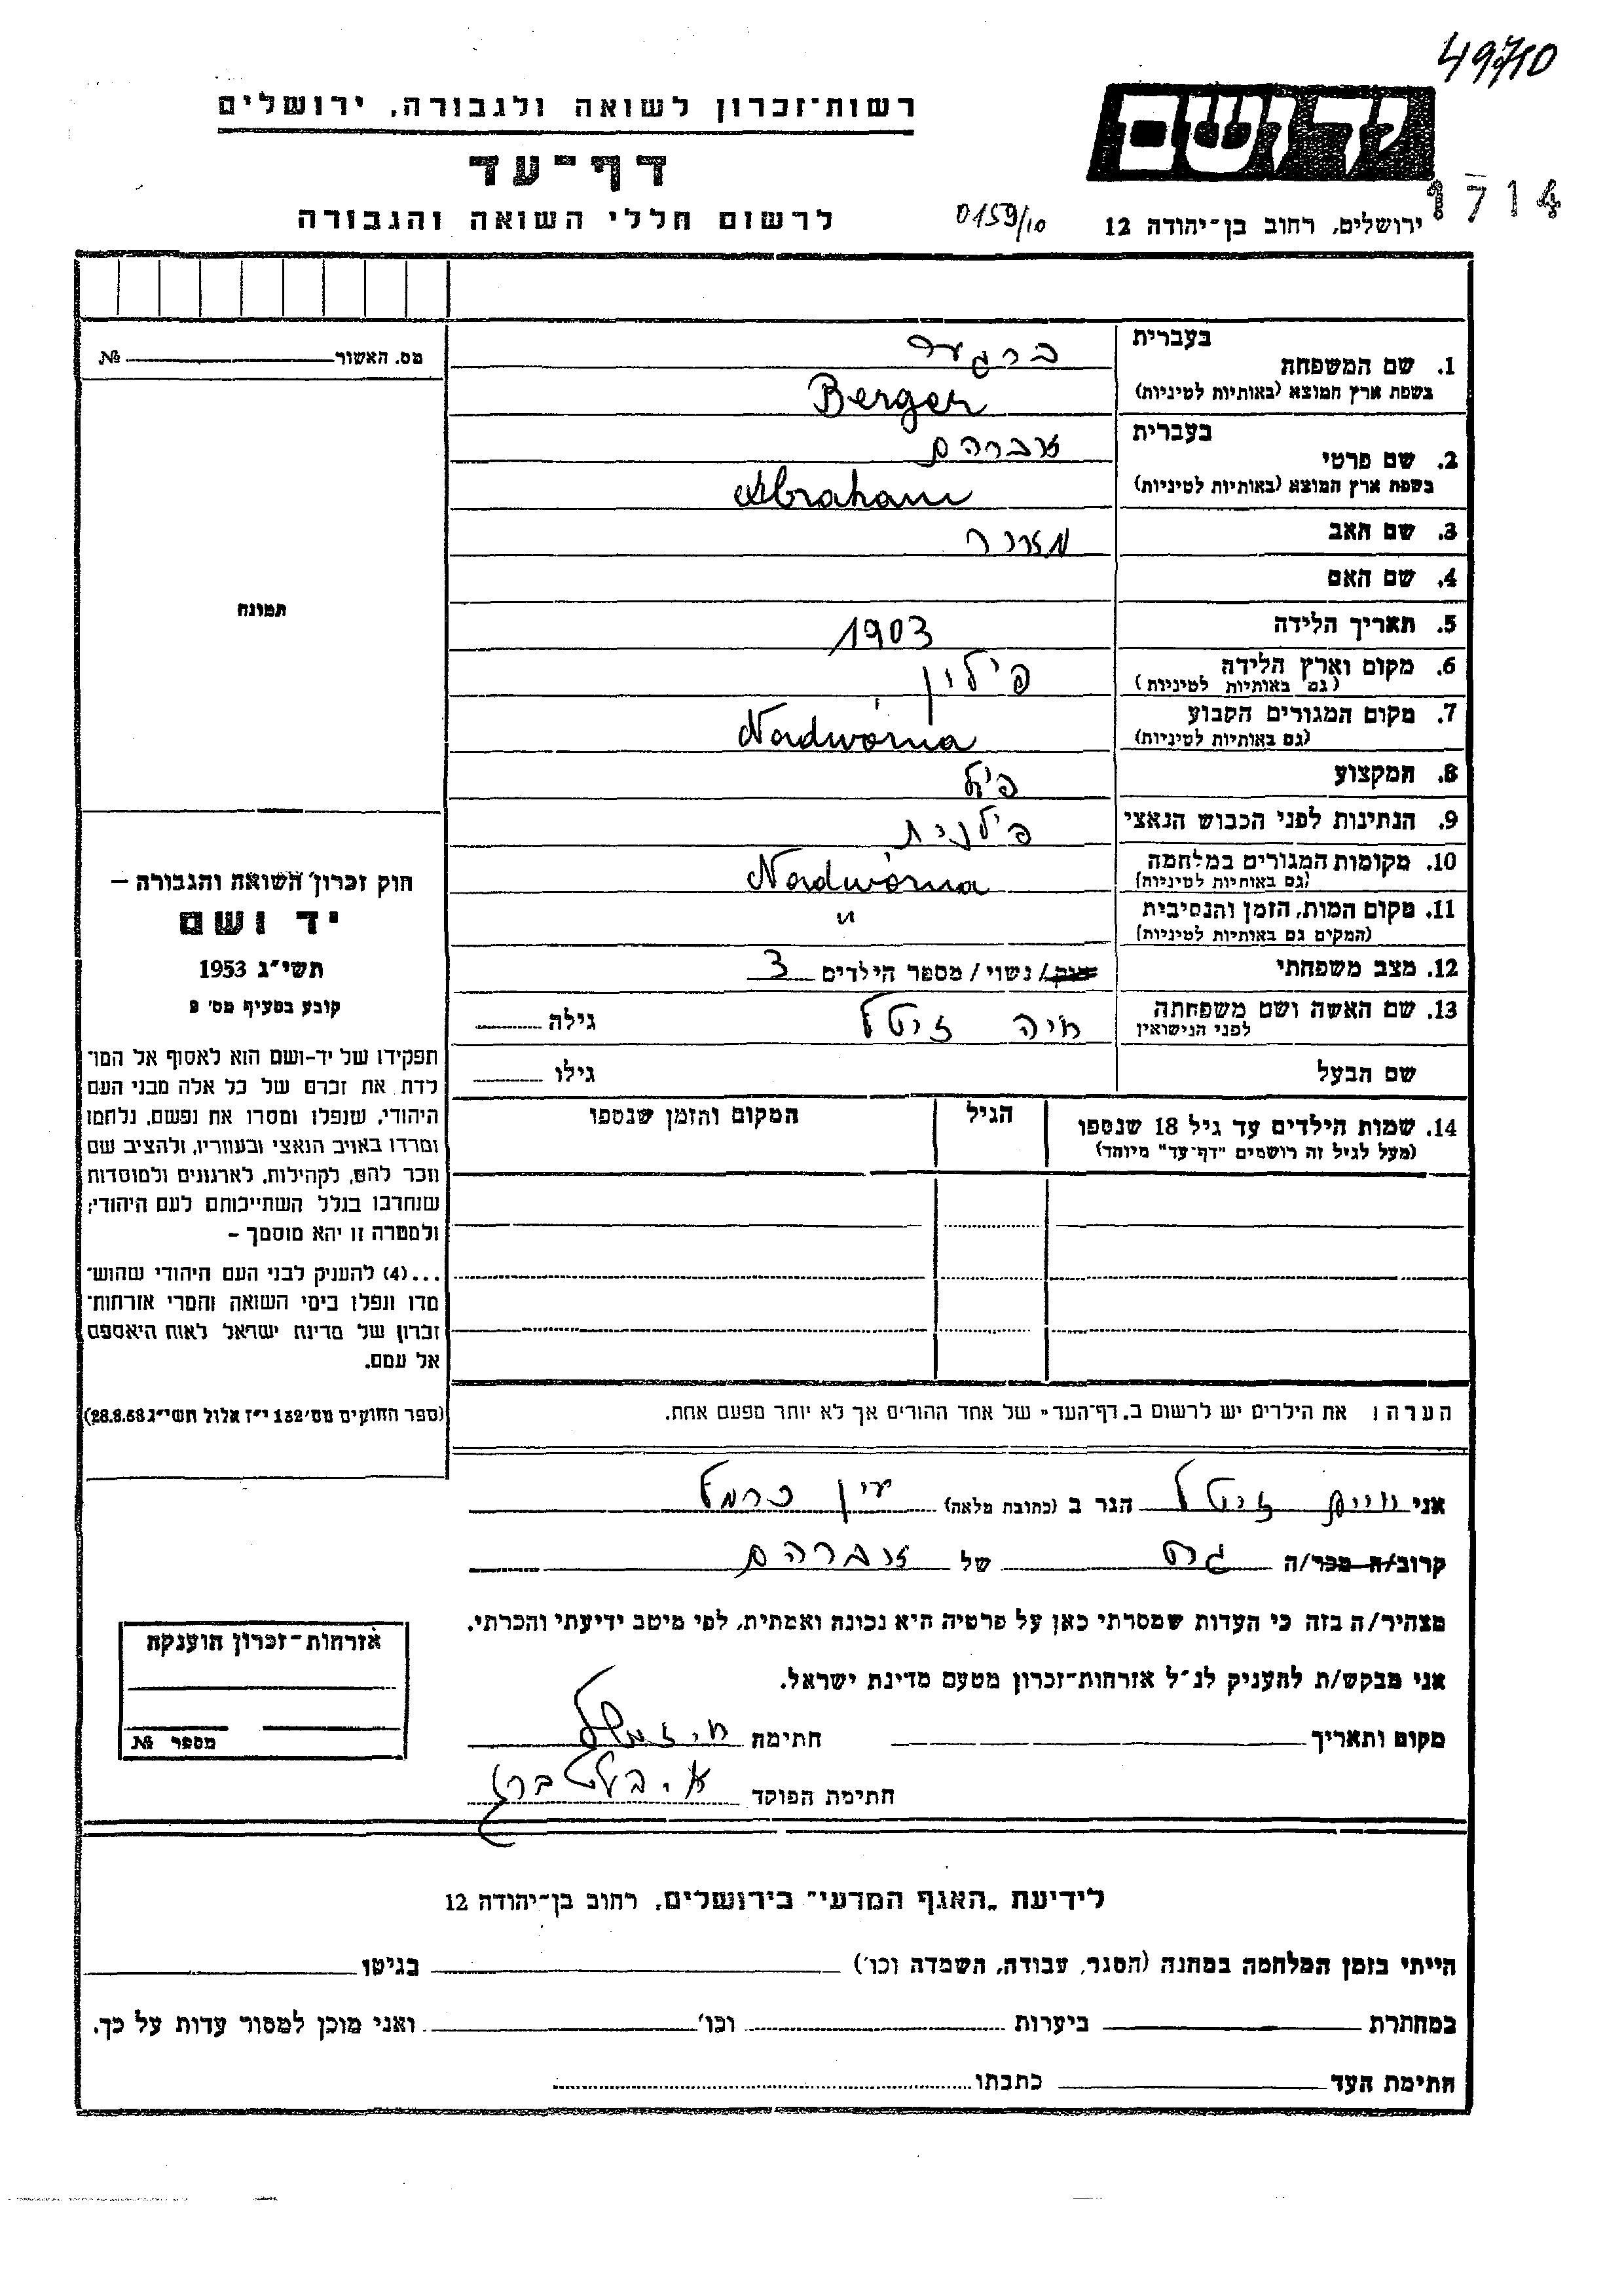 49710
רשות־זכרון לשואה ולגבורה, ירושלים
דף־עד
לרשום חללי השואה והגבורה
יד ושם
1714
ירושלים, רחוב בן־יהודה 12
0159/10
מס. האשור № 
תמונה
חוק זכרון השואה והגבורה –
יד ושם
תשי״ג 1953
קובע בסעיף מס׳ 9
תפקידו של יד-ושם הוא לאסוף אל המו־
לדת את זכרם של כל אלה מבני העם
היהודי, שנפלו ומסרו את נפשם, נלחמו
ומרדו באויב הנאצי ובעוזריו, ולהציב שם
וזכר להם, לקהילות, לארגונים ולמוסדות
שנחרבו בגלל השתייכותם לעם היהודי;
ולמטרה זו יהא מוסמך –
...(4) להעניק לבני העם היהודי שהוש־
מדו ונפלו בימי השואה והמרי אזרחות־
זכרון של מדינת ישראל לאות היאספם
אל עמם.
(ספר החוקים מס׳ 132 י״ז אלול תשי״ג 28.8.53)
1. שם המשפחה בעברית ברגער
בשפת ארץ המוצא (באותיות לטיניות) Berger
2. שם פרטי בעברית אברהם
בשפת ארץ המוצא (באותיות לטיניות) Abraham
3. שם האב מאיר
4. שם האם
5. תאריך הלידה 1903
6. מקום וארץ הלידה פולין
(גם באותיות לטיניות)
7. מקום המגורים הקבוע Nadwórna
(גם באותיות לטיניות)
8. המקצוע
9. הנתינות לפני הכבוש הנאצי פולנית
10. מקומות המגורים במלחמה Nadwórna
(גם באותיות לטיניות)
11. מקום המות, הזמן והנסיבות "
(המקום גם באותיות לטיניות)
12. מצב משפחתי רווק/ נשוי / מספר הילדים 3
13. שם האשה ושם משפחתה לפני הנישואין חיה זיטל גילה
שם הבעל גילו
14. שמות הילדים עד גיל 18 שנספו הגיל המקום והזמן שנספו
(מעל לגיל זה רושמים ״דף־עד״ מיוחד)
הערה: את הילדים יש לרשום ב„דף־העד״ של אחד ההורים אך לא יותר מפעם אחת.
אני חיים זיטל הגר ב (כתובת מלאה) עין כרמל
קרוב/ה מכר/ה גיס של אברהם
מצהיר/ה בזה כי העדות שמסרתי כאן על פרטיה היא נכונה ואמתית, לפי מיטב ידיעתי והכרתי.
אני מבקש/ת להעניק לנ״ל אזרחות־זכרון מטעם מדינת ישראל.
מקום ותאריך חתימה ח. זיטל
חתימת הפוקד
אזרחות־זכרון הוענקה
מספר №
לידיעת „האגף המדעי״ בירושלים, רחוב בן־יהודה 12
הייתי בזמן המלחמה במחנה (הסגר, עבודה, השמדה וכו׳) בגיטו
במחתרת ביערות וכו׳ ואני מוכן למסור עדות על כך.
חתימת העד כתבתו